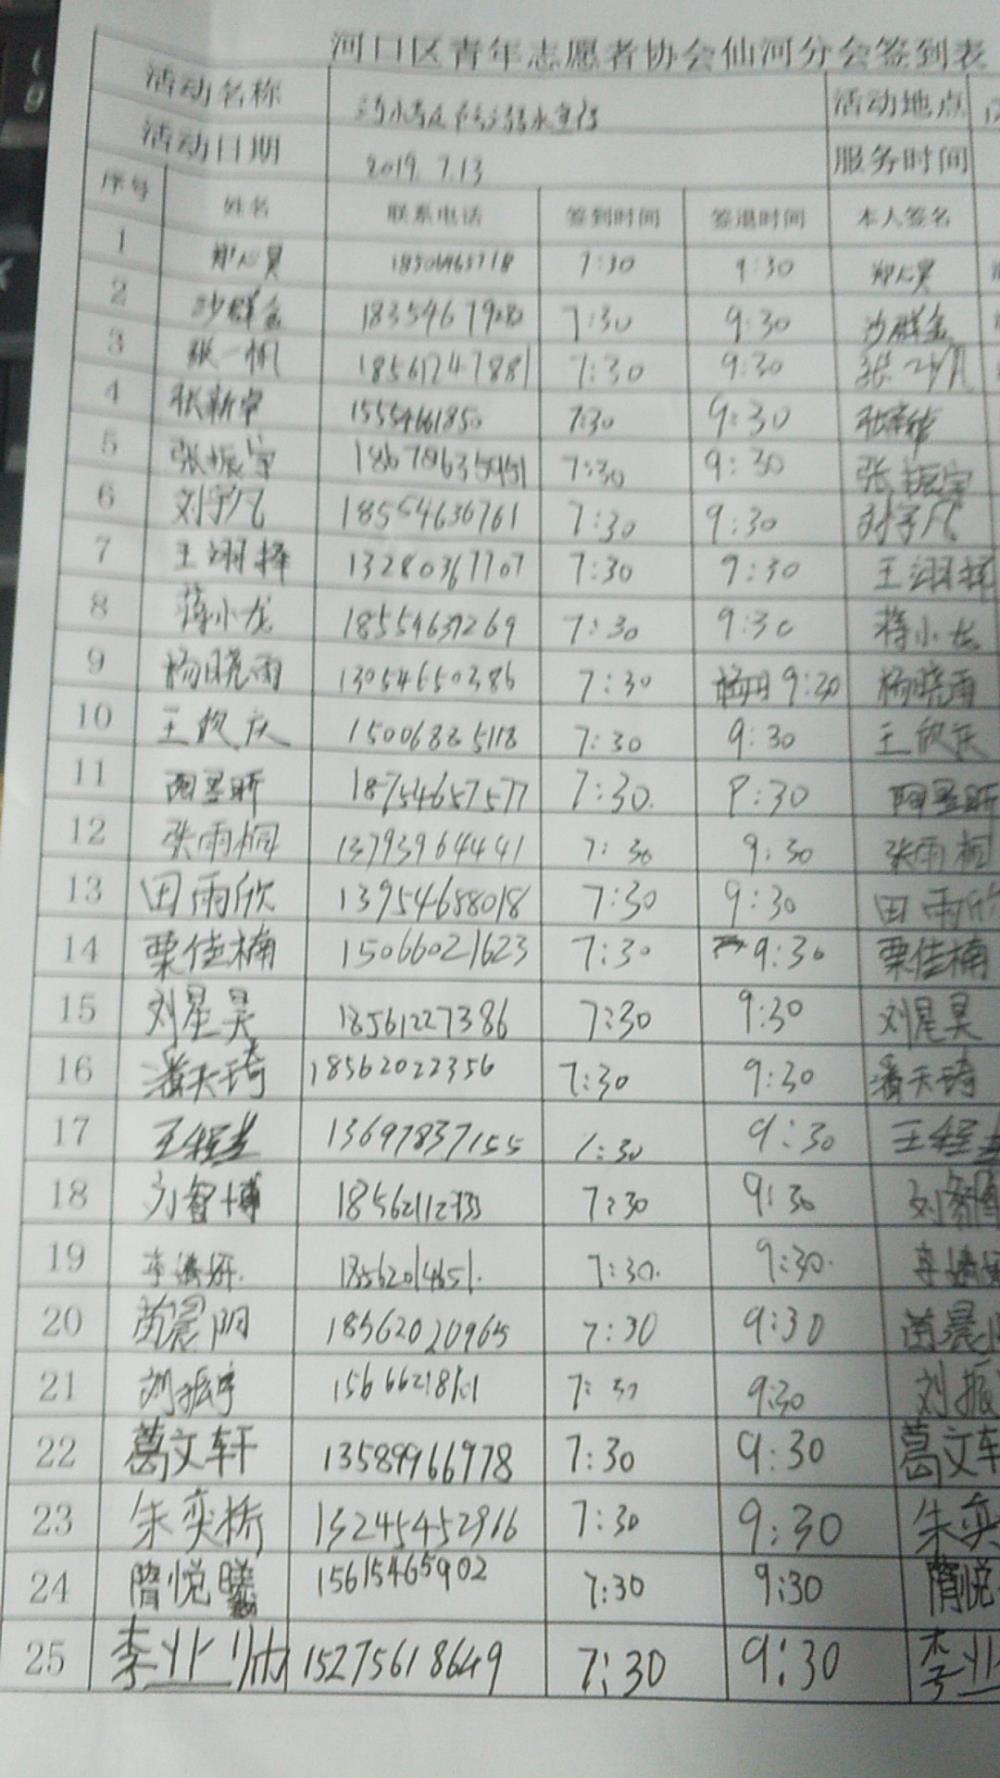 河口区青年志愿者协会仙河分会签到表
活动名称 活动地点
活动日期 2019.7.13 服务时间
序号 姓名 联系电话 签到时间 签退时间 本人签名
1 郑心昊 7:30 9:30 郑心昊
2 沙群金 7:30 9:30 沙群金
3 张一帆 18561747881 7:30 9:30 张一帆
4 张新宇 15554661850 7:30 9:30
5 张振宇 7:30 9:30 张振宇
6 刘宇凡 18554636761 7:30 9:30 刘宇凡
7 王翊择 13280367707 7:30 9:30 王翊择
8 蒋小龙 18554637269 7:30 9:30 蒋小龙
9 杨晓雨 13054650386 7:30 9:30 杨晓雨
10 王欣庆 15006825118 7:30 9:30 王欣庆
11 18754657577 7:30. 9:30
12 张雨桐 13793964441 7:30 9:30 张雨桐
13 田雨欣 13954688018 7:30 9:30 田雨欣
14 栗佳楠 15066021623 7:30 9:30 栗佳楠
15 刘星昊 18561227386 7:30 9:30 刘星昊
16 潘天琦 18562022356 7:30 9:30 潘天琦
17 王程 13697837155 7:30 9:30 王程
18 刘智博 7:30 9:30 刘智博
19 18562014651. 7:30. 9:30.
20 苗晨阳 18562020965 7:30 9:30 苗晨
21 刘振宇 7:30 9:30 刘振
22 葛文轩 13589966978 7:30 9:30 葛文轩
23 朱奕桥 13245452916 7:30 9:30 朱奕
24 隋悦曦 15615465902 7:30 9:30 隋悦
25 李业帅 15275618649 7:30 9:30 李业